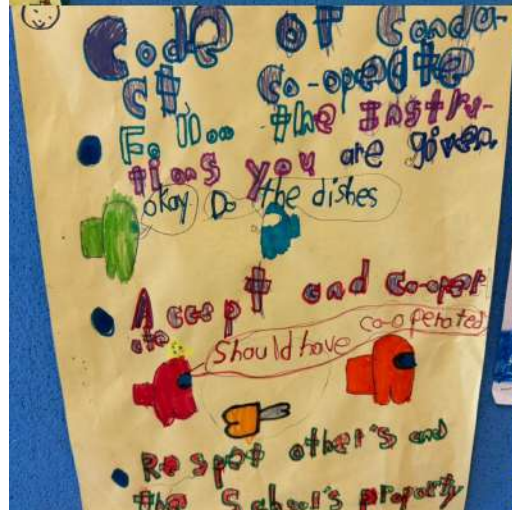 Code of Conda-
ct Co-opedte
Follow the Instru-
tions you are given.
okay Do the dishes
Accept and co-oper
ate
Should have co-operated
Respet other's and
the School's property